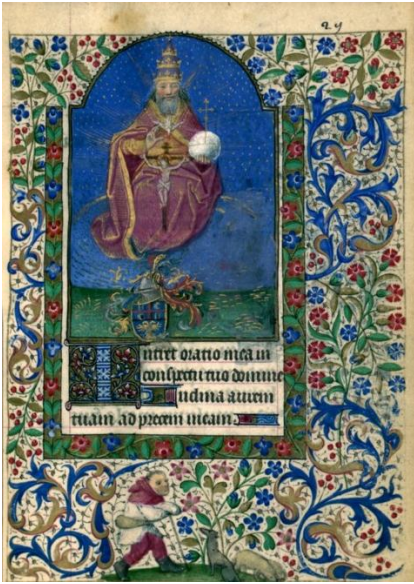 Intret oratio mea in
conspectu tuo domine
Inclina aurem
tuam ad precem meam